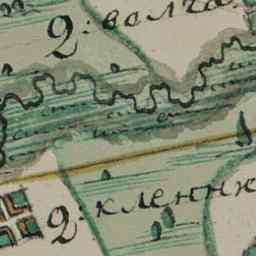 2: волча
2: кленник